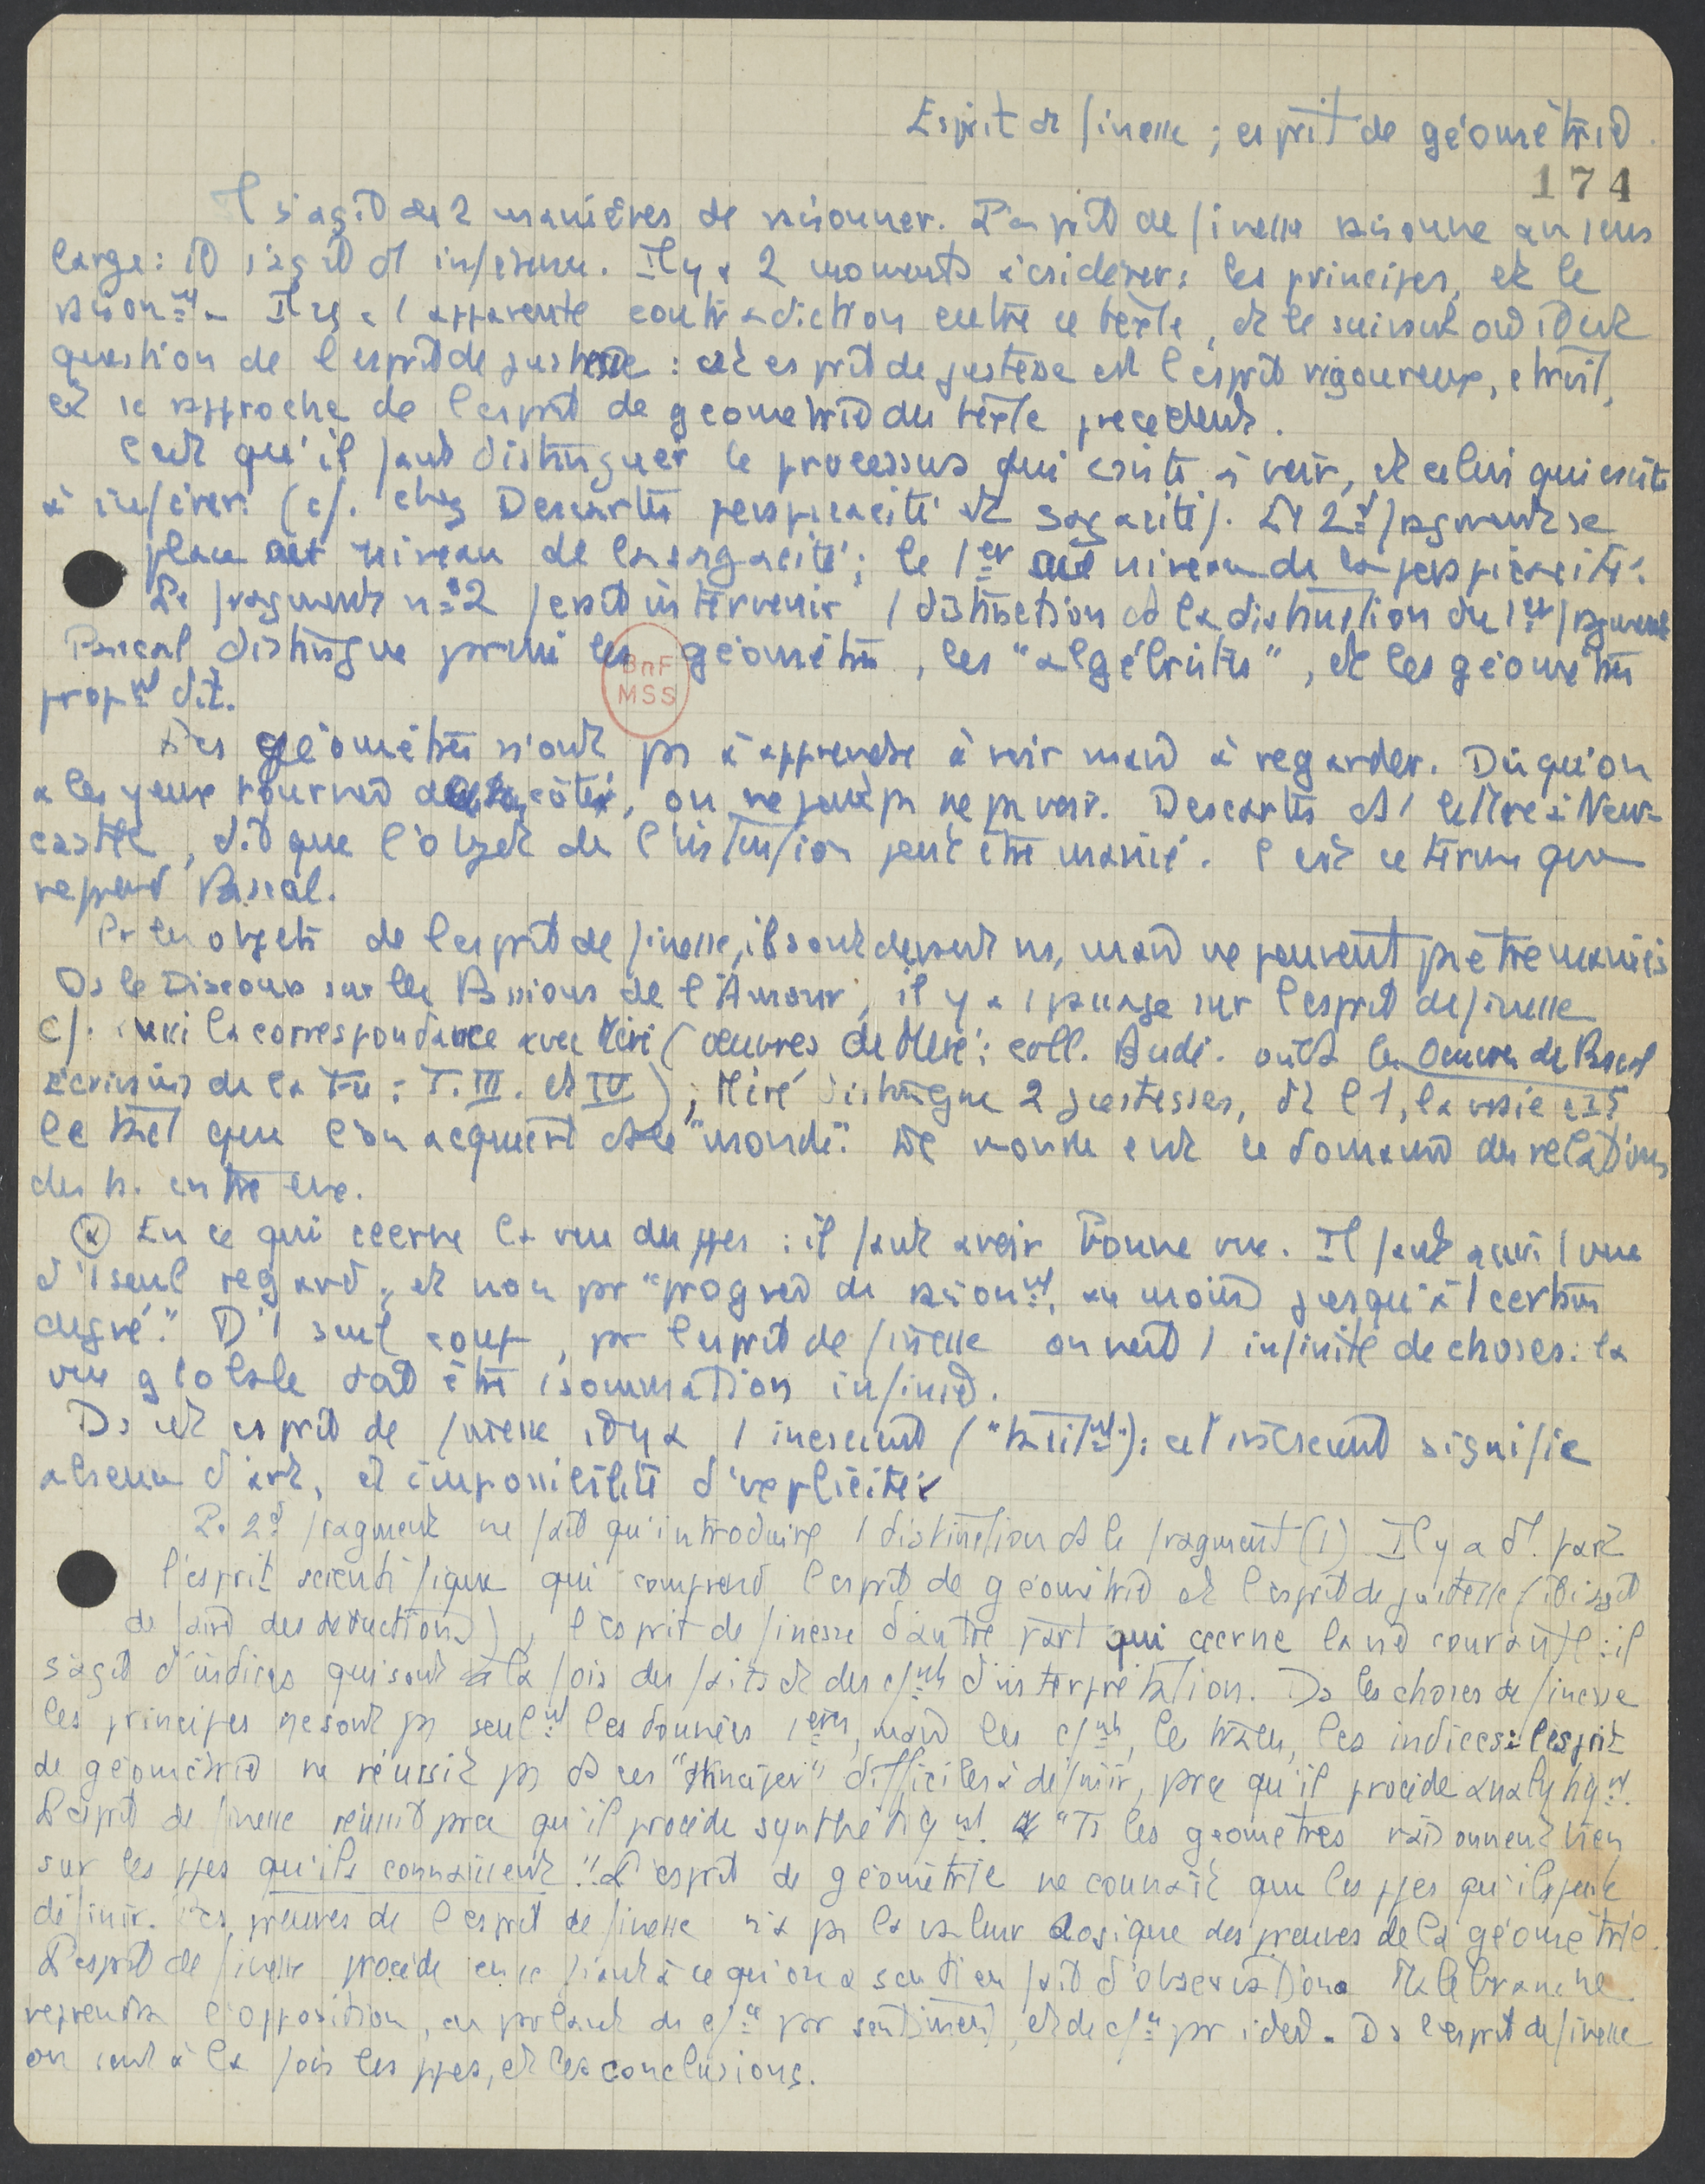 Esprit de finesse ; esprit de géométrie.
174
Il s'agit des 2 manières de raisonner. L'esprit de finesse raisonne au sens
large : il s'agit d'1 inférence. Il y a 2 moments à csidérer : les principes, et le
raisonnt. Il y a 1 apparente contradiction entre ce texte, et le suivant où il est
question de l'esprit de justesse : cet esprit de justesse est l'esprit rigoureux, étroit,
et se rapproche de l'esprit de géométrie du texte précédent.
C'est qu'il faut distinguer le processus qui csiste à voir, et celui qui csiste
à inférer. (cf. chez Descartes perspicacité et sagacité). Le 2d fragment se
place au niveau de la sagacité ; le 1er au niveau de la perspicacité.
Le fragment n°2 fait intervenir 1 distinction ds la distinction du 1er fragment
Pascal distingue parmi les géomètres, les "algébristes", et les géomètres
BnF
MSS
propt dit.
Les géomètres n'ont pas à apprendre à voir mais à regarder. Dès qu'on
a les yeux tournés de ce côté, on ne peut pas ne pas voir. Descartes ds 1 lettre à New-
castle, dit que l'objet de l'intuition peut être manié. C'est ce terme que
reprend Pascal.
Pr les objets de l'esprit de finesse, ils sont devant ns, mais ne peuvent pas être maniés
Ds le Discours sur les Passions de l'Amour, il y a 1 passage sur l'esprit de finesse
cf. aussi la correspondance avec Méré (œuvres de Méré : coll. Budé. ou ds les Oeuvres de Pascal
Ecrivains de la Fce : T. III. et IV) ; Méré distingue 2 justesses, et l'1, la vraie est
le tact que l'on acquiert ds le "monde". Le monde est le domaine des relations
des h. entre eux.
En ce qui ccerne la vue des ppes : il faut avoir bonne vue. Il faut aussi 1 vue
d'1 seul regard, et non par "progrès de raisonnt, au moins jusqu'à 1 certain
degré." D'1 seul coup, par l'esprit de finesse on voit 1 infinité de choses : la
vue globale doit être 1 sommation infinie.
Ds cet esprit de finesse il y a 1 inconscient ("tacitt") : cet inconscient signifie
absence d'art, et impossibilité d'expliciter
Le 2d fragment ne fait qu'introduire 1 distinction ds le fragment (1) Il y a d'1 part
l'esprit scientifique qui comprend l'esprit de géométrie et l'esprit de justesse (il s'agit
de faire des déductions), l'esprit de finesse d'autre part qui ccerne la vie courante : il
s'agit d'indices qui sont à la fois des faits et des cfnts d'interprétation. Ds les choses de finesse
les principes ne sont pas seult les données 1ères, mais les cfnts, les traces, les indices : l'esprit
de géométrie ne réussit pas ds ces "principes" difficiles à définir, parce qu'il procède analytiqt.
L'esprit de finesse réussit parce qu'il procède synthétiqt. "Ts les géomètres raisonnent bien
sur les ppes qu'ils connaissent". L'esprit de géométrie ne connaît que les ppes qu'il peut
définir. Les preuves de l'esprit de finesse n'a pas la valeur logique des preuves de la géométrie.
L'esprit de finesse procède en se fiant à ce qu'on a senti en fait d'observations Malebranche
reprendra l'opposition, en parlant de cfce par sentiment, et de cfce par idée. Ds l'esprit de finesse
on sent à la fois les ppes, et les conclusions.